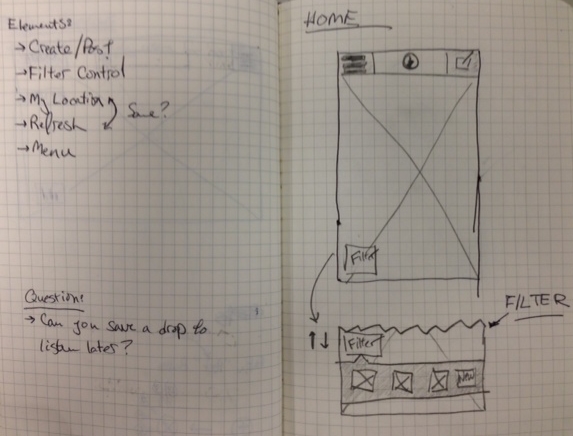 Elements?
→ Create/Post
→ Filter Control
→ My Location
→ Refresh
Same?
→ Menu
Questions
→ Can you save a drop to
listen later?
HOME
Filter
FILTER
Filter
NEW